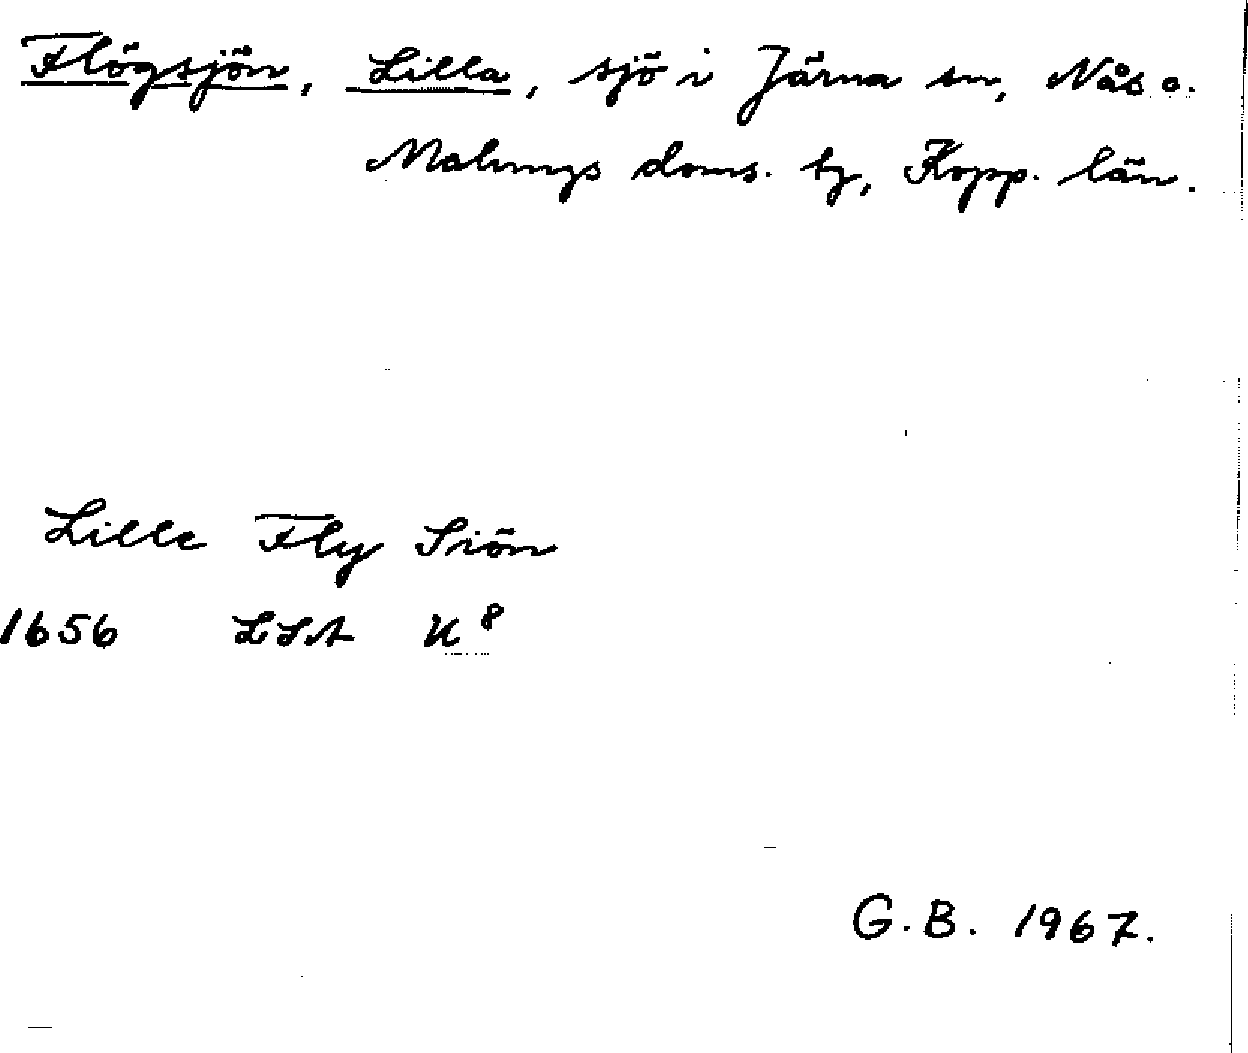 Flögsjön, Lilla, sjö i Järna sn, Nås o.
Malungs doms. tg, Kopp. län.
Lille Fly Siön
1656 LSA U⁸
G.B. 1967.